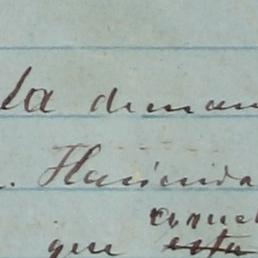 la deman
. Hacienda
que esta